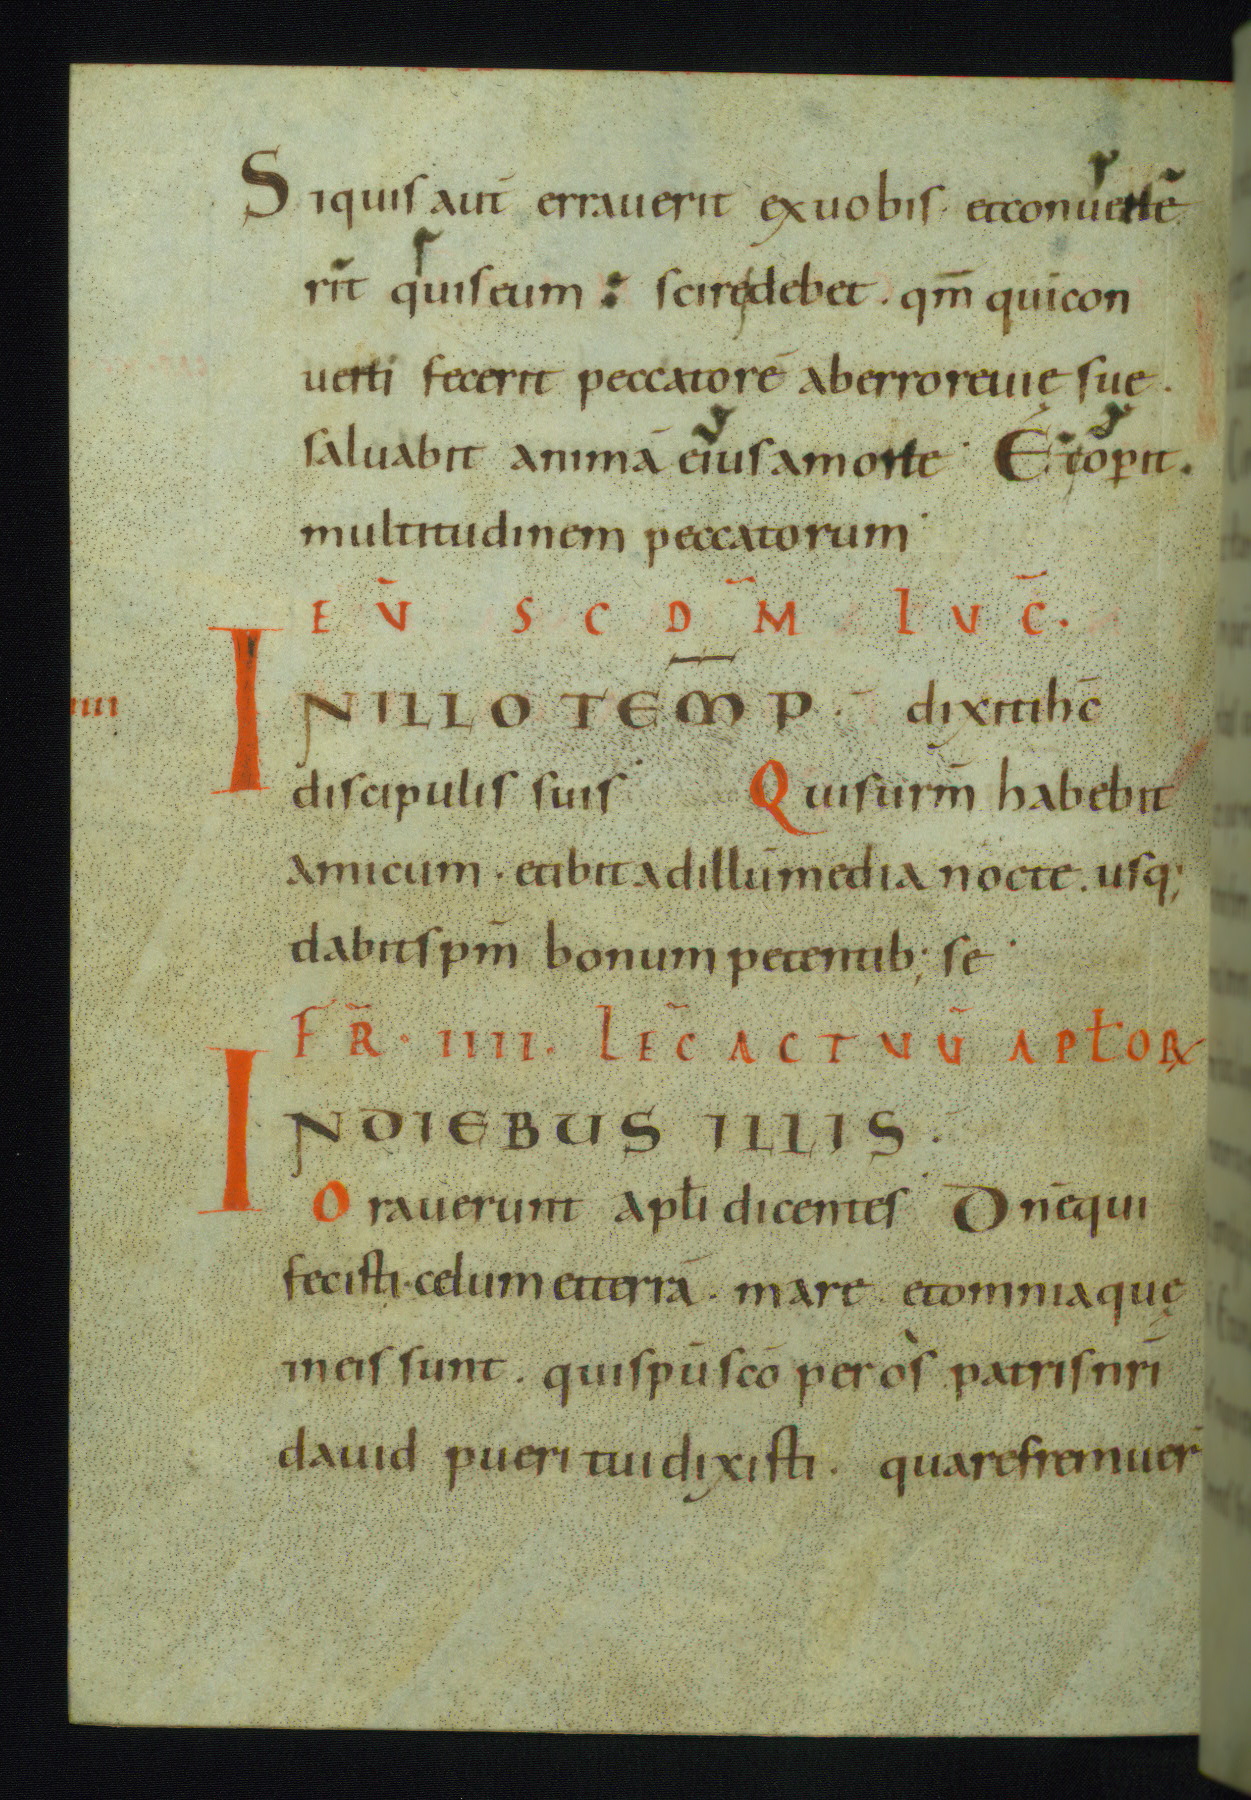 Siquis aut̄ errauerit exuobis· etconuertẽ
rit̃ quiseum : sciredebet . qm̄ quicon
uerti fecerit peccatorē aberroreuię sue .
saluabit animā eiusamorte· Et̄oper̄it .
multitudinem peccatorum·
EV̄ SCDM̄ LVC̄.
IIII
INILLO TEM̄P· dixitihc̄
discipulis suis· Quisurm̄ habebit
amicum . etibit adillūmedia nocte . usq;
dabitspm̄ bonum petentib; se·
FR̄ · IIII · LEC̄ ACTVŪ APŁORꝜ
INDIEBUS ILLIS ·
Orauerunt apłi dicentes· Dn̄equi
fecisti·celum etterrā . mare . etomniaquę
ineis sunt . quispūscō peros patrisnr̄i
dauid pueri tuidixisti . quarefremuer̄